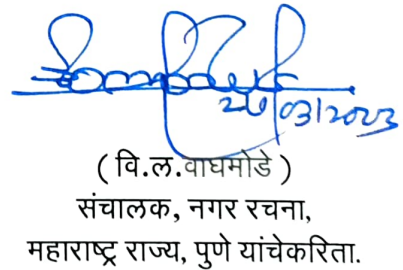 28/03/2023
( वि.ल.वाघमोडे )
संचालक, नगर रचना,
महाराष्ट्र राज्य, पुणे यांचेकरिता.